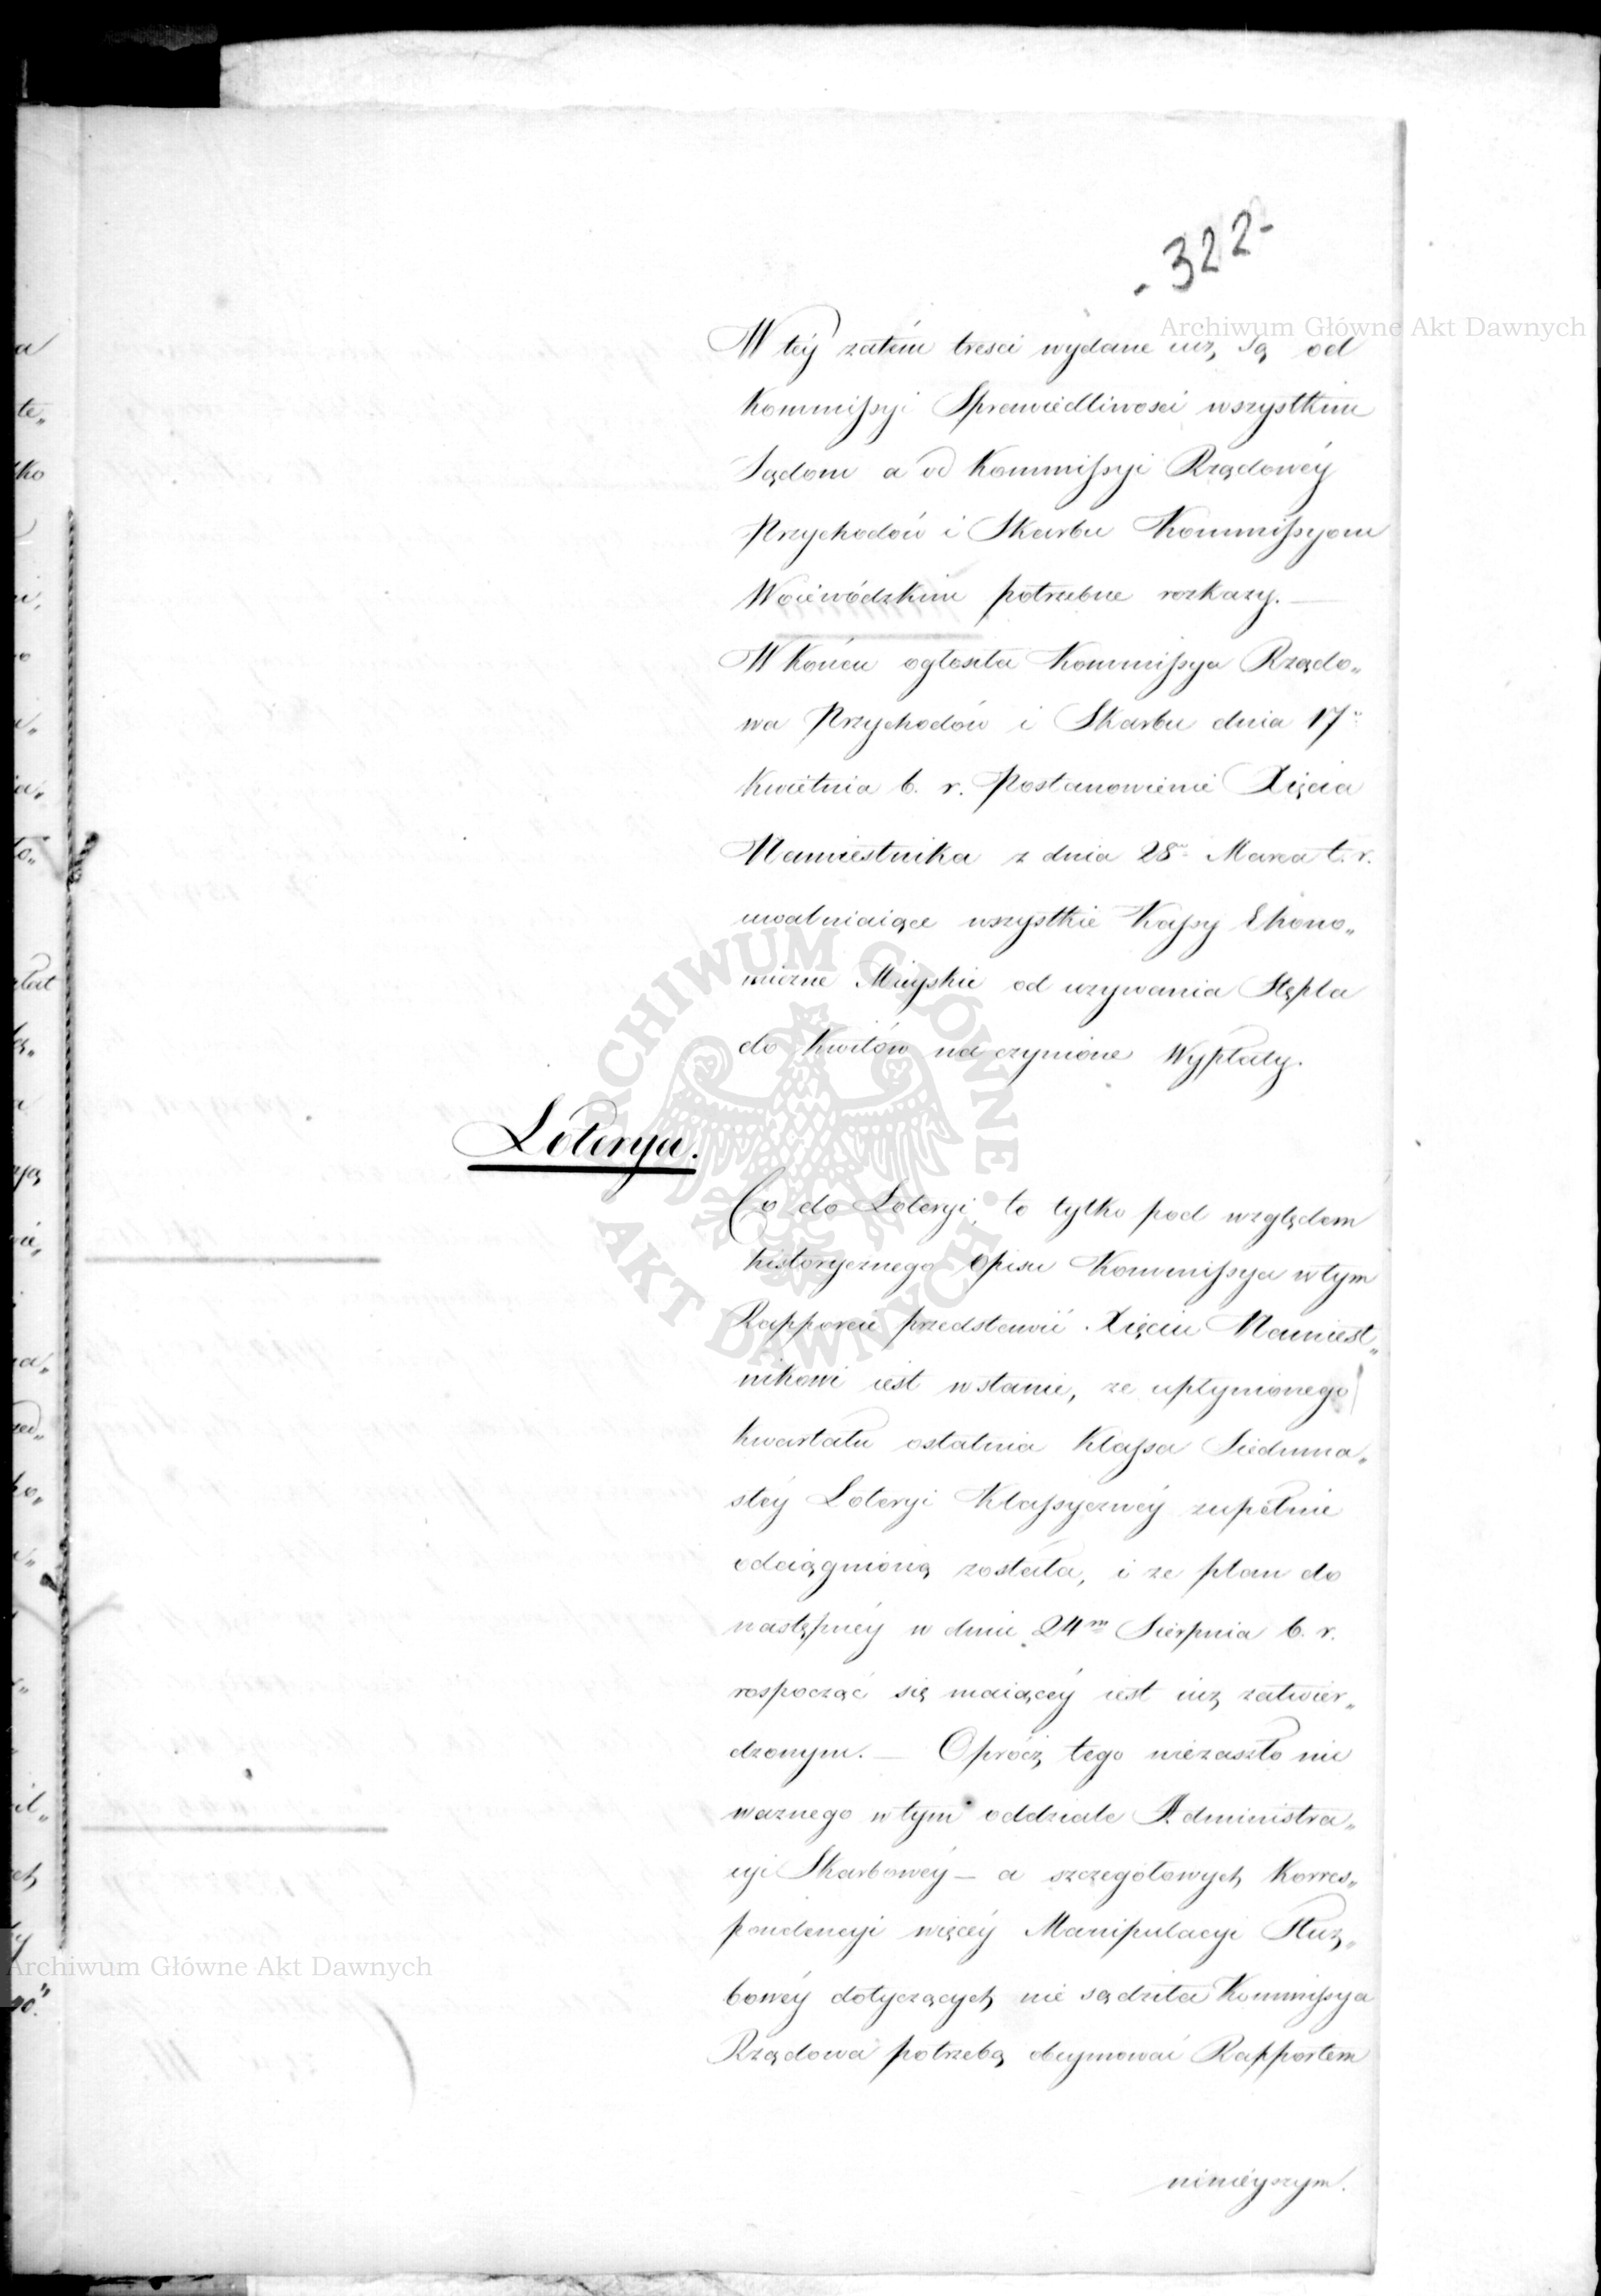 - 322 -
Archiwum Główne Akt Dawnych
W téy zatém tresci wydane iuż są od
Kommissyi Sprawiedliwosci wszystkim
Sądom a od Kommissyi Rządowéy
Przychodów i Skarbu Kommissyom
Woiewódzkim potrzebne rozkazy. —
W Końcu ogłosiła Kommissya Rządo„
wa Przychodów i Skarbu dnia 17º
Kwietnia b. r. Postanowienie Xięcia
Namiestnika z dnia 28º Marca t. r.
uwalniaiące wszystkie Kassy Ekono„
miczne Mieyskie od uzywania Stępla
do Kwitów na czynione Wypłaty.
Loterya.
Co do Loteryi, to tylko pod względem
historycznego Opisu Kommissya w tym
Rapporcie przedstawić Xięciu Namiest„
nikowi iest w stanie, ze upłynionego
kwartału ostatnia Klassa Siedmna„
stéy Loteryi Klassyczney zupełnie
odciągnioną została, i ze plan do
następnéy w dniu 24m Sierpnia b. r.
rospocząć się maiącéy iest iuż zatwier„
dzonym. — Oprócz tego niezaszło nic
waznego w tym oddziale Administra„
cyi Skarbowéy — a szczegółowych Korres„
pondencyi więcéy Manipulacyi Służ„
bowéy dotyczących nie sądziła Kommissya
Rządowa potrzebą obeymować Rapportem
ninieyszym.
Archiwum Główne Akt Dawnych
ARCHIWUM GŁÓWNE · AKT DAWNYCH ·